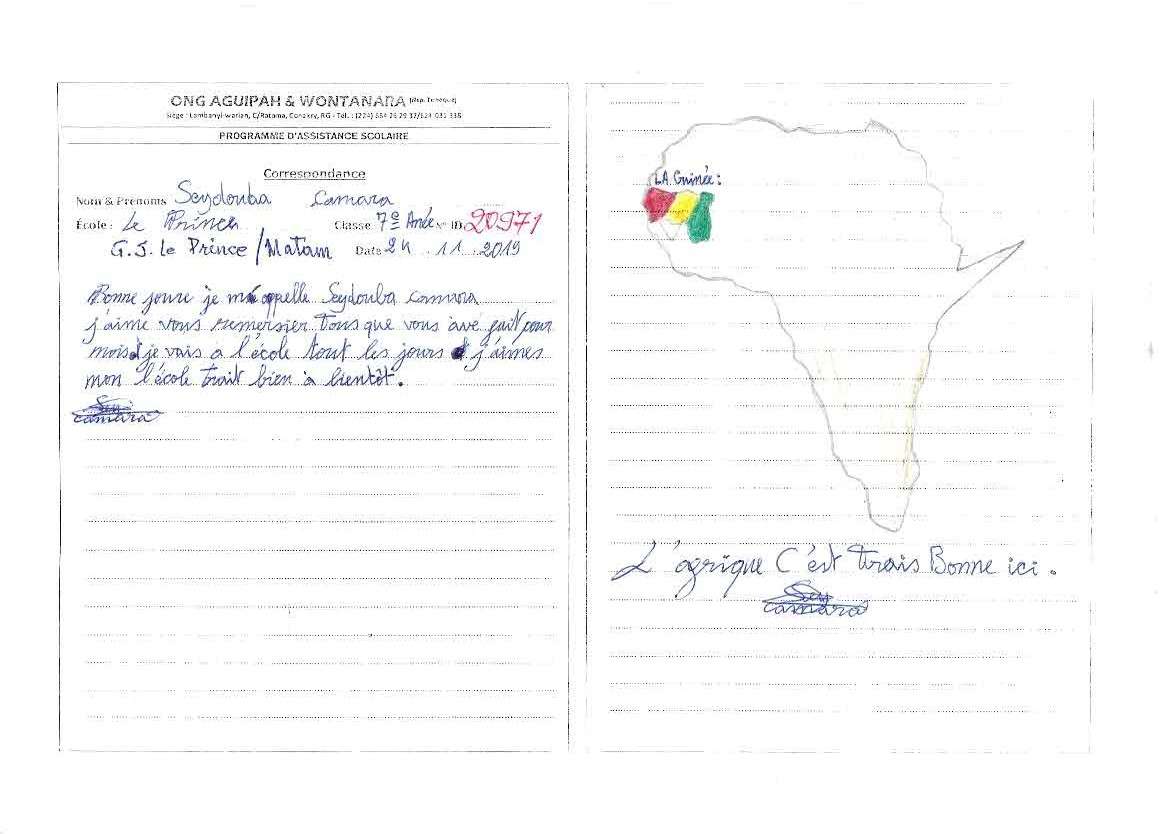 ONG AGUIPAH & WONTANARA (Rép. Tchèque)
Siège : Lambanyi-warian, C/Ratoma, Conakry, RG - Tél. : (224)
PROGRAMME D'ASSISTANCE SCOLAIRE
Correspondance
Nom & Prénoms Seydouba Camara
École : Le Prince Classe 7e Anée N° ID 20971
G.S. le Prince / Matam Date 24 . 11 . 2019
Bonne joure je m'appelle Seydouba camara
j'aime vous remersier Tous que vous avé fait pour
mois je vais à l'école tout les jours j'aimes
mon l'école trait bien à bientôt.
Sey
camara
LA Guinée :
L'afrique C'est trais Bonne ici .
Sey
camara